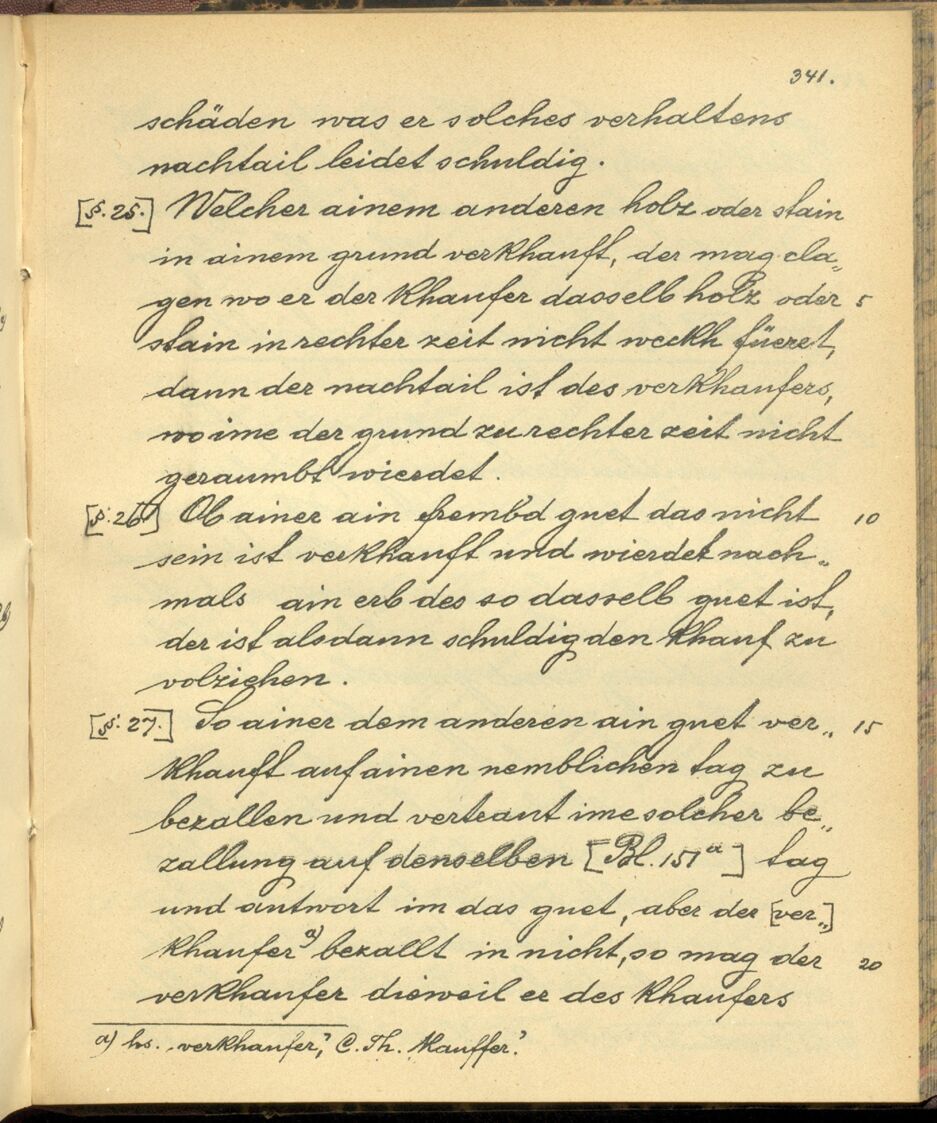 341.
schäden was er solches verhaltens
nachtail leidet schuldig.
[§. 25.] Welcher ainem anderen holz oder stain
in ainem grund verkhauft, der mag cla„
gen wo er der khaufer dasselb holz oder 5
stain in rechter zeit nicht weckh füeret,
dann der nachtail ist des verkhaufers,
wo ime der grund zu rechter zeit nicht
geraumbt wierdet.
[§. 26] Ob ainer ain frembd guet das nicht 10
sein ist verkhauft und wierdet nach„
mals ain erb des so dasselb guet ist,
der ist alsdann schuldig den khauf zu
volziehen.
[§. 27.] So ainer dem anderen ain guet ver„ 15
khauft auf ainen nemblichen tag zu
bezallen und vertraut ime solcher be„
zallung auf denselben [Bl. 151ᵃ] tag
und antwort im das guet, aber der [ver„]
khaufer a) bezallt in nicht, so mag der 20
verkhaufer dieweil er des khaufers
a) hs. „verkhaufer", C. Th. Kauffer."